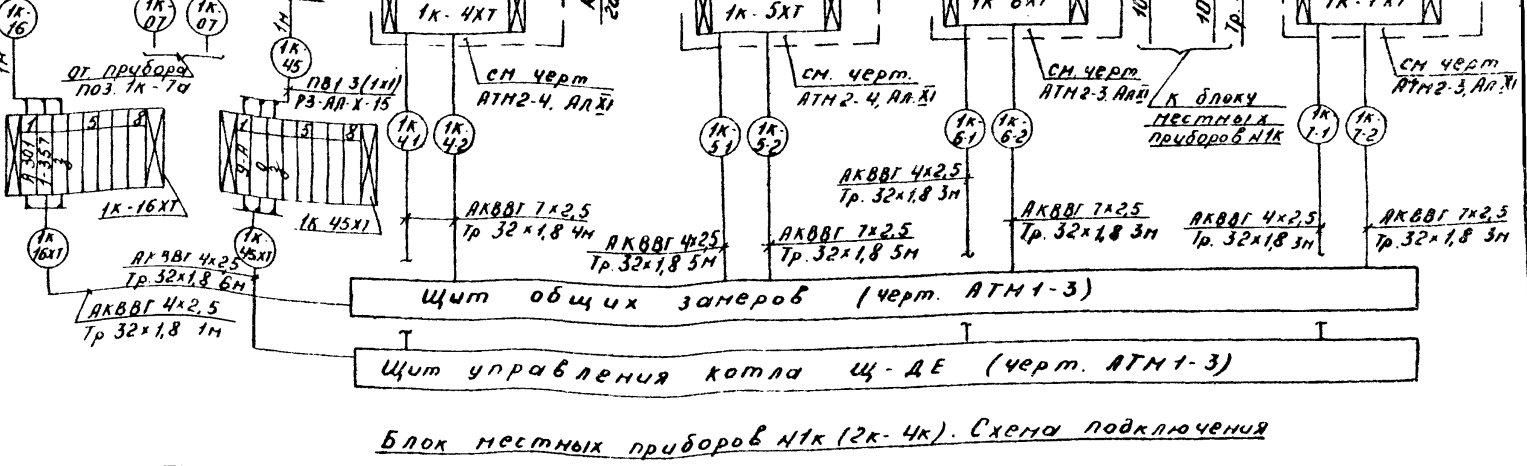 1К-16
1К-07
1К-07
1м
1К-45
1м
от прибора
поз. 1К-7а
ПВ1 3(1х1)
РЗ-АЛ-Х-15
1К-4ХТ
1К-5ХТ
1К-6ХТ
1К-7ХТ
10
10
Тр.
см. черт
АТМ2-4, Ал XI
см. черт.
АТМ2-4, Ал. XI
см. черт
АТМ2-3, Ал XI
к блоку
местных
приборов №1К
см черт
АТМ2-3, Ал. XI
1 5 8
А301
1-357
1 5 8
1К-16ХТ
1К 45ХТ
1К-4-1
1К-4-2
1К-5-1
1К-5-2
1К-6-1
1К-6-2
1К-7-1
1К-7-2
1К-16ХТ
1К-45ХТ
АКВВГ 4х2,5
Тр. 32х1,8 3м
АКВВГ 7х2,5
Тр 32х1,8 4м
АКВВГ 4х2,5
Тр. 32х1,8 5м
АКВВГ 7х2,5
Тр. 32х1,8 5м
АКВВГ 7х2,5
Тр. 32х1,8 3м
АКВВГ 4х2,5
Тр. 32х1,8 3м
АКВВГ 7х2,5
Тр. 32х1,8 3м
АКВВГ 4х25
Тр. 32х1,8 6м
АКВВГ 4х2,5
Тр 32х1,8 1м
Щит общих замеров (черт. АТМ1-3)
Щит управления котла Щ-ДЕ (черт. АТМ1-3)
Блок местных приборов №1к (2к-4к). Схема подключения